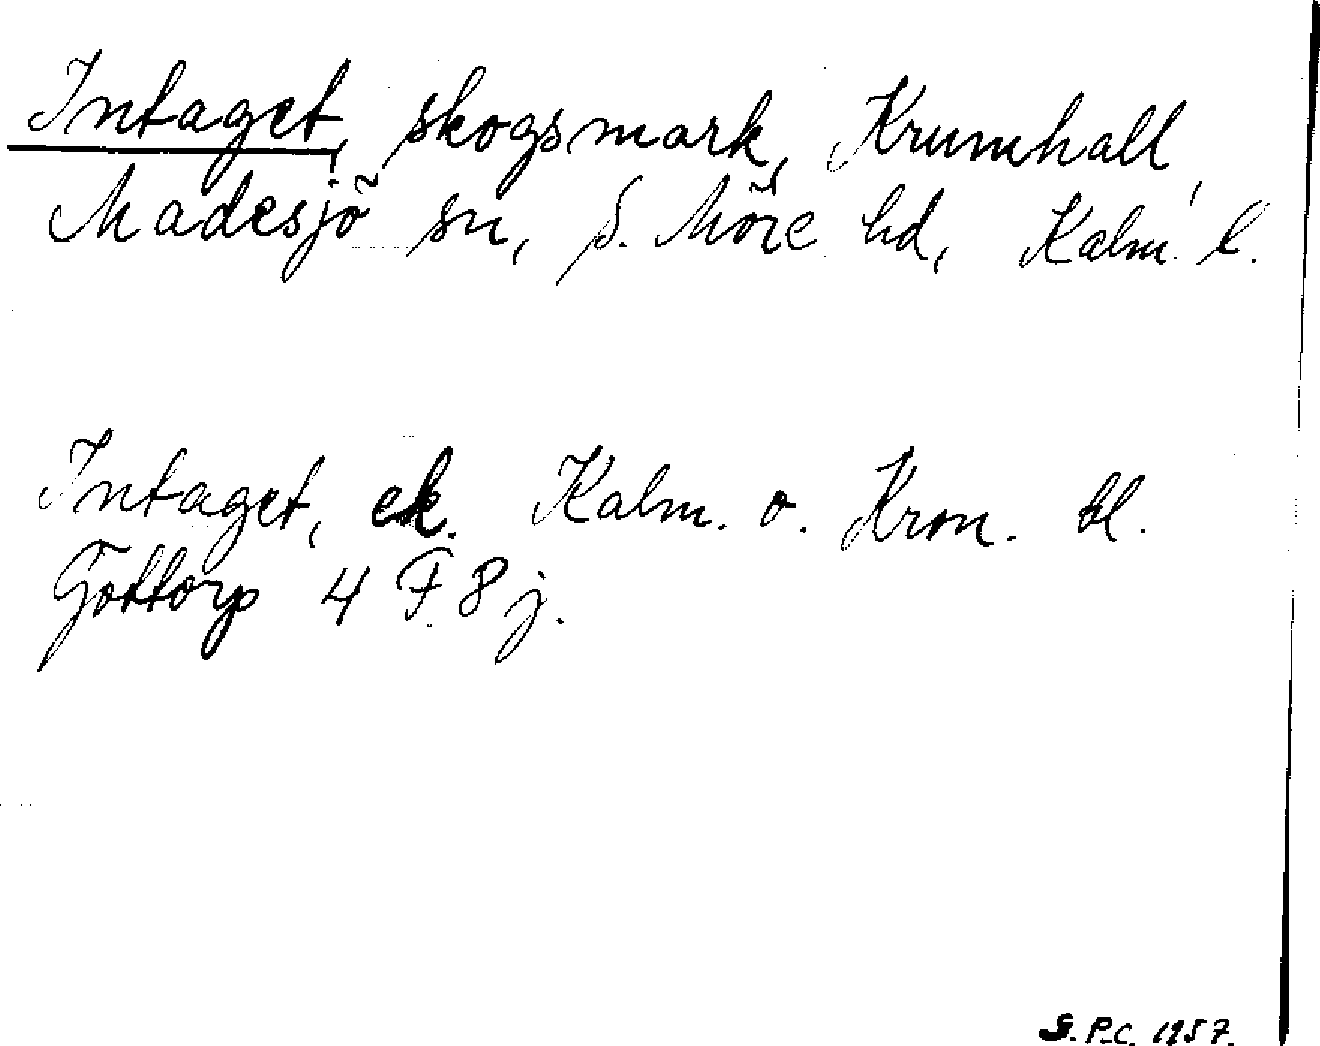 Intaget, skogsmark, Krumhall,
Madesjö sn, S. Möre hd, Kalm. l.
Intaget, ek. Kalm. o. Kron. bl.
Tottorp 4 F. 8 j.
S. P.C. 1957.